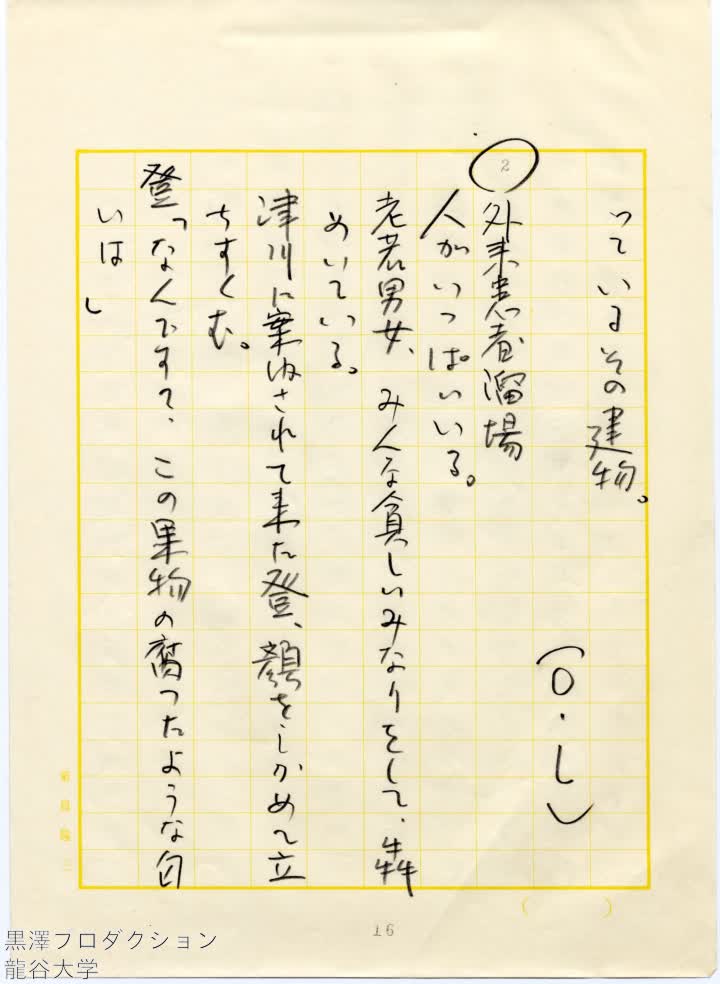 っているその建物。
(O・L)
2 外来患者溜場
人がいっぱいいる。
老若男女、みんな貧しいみなりをして、犇
めいている。
津川に案内されて来た登、顔をしかめて立
ちすくむ。
登「なんです、この果物の腐ったような匂
いは」
16
黒澤プロダクション
龍谷大学